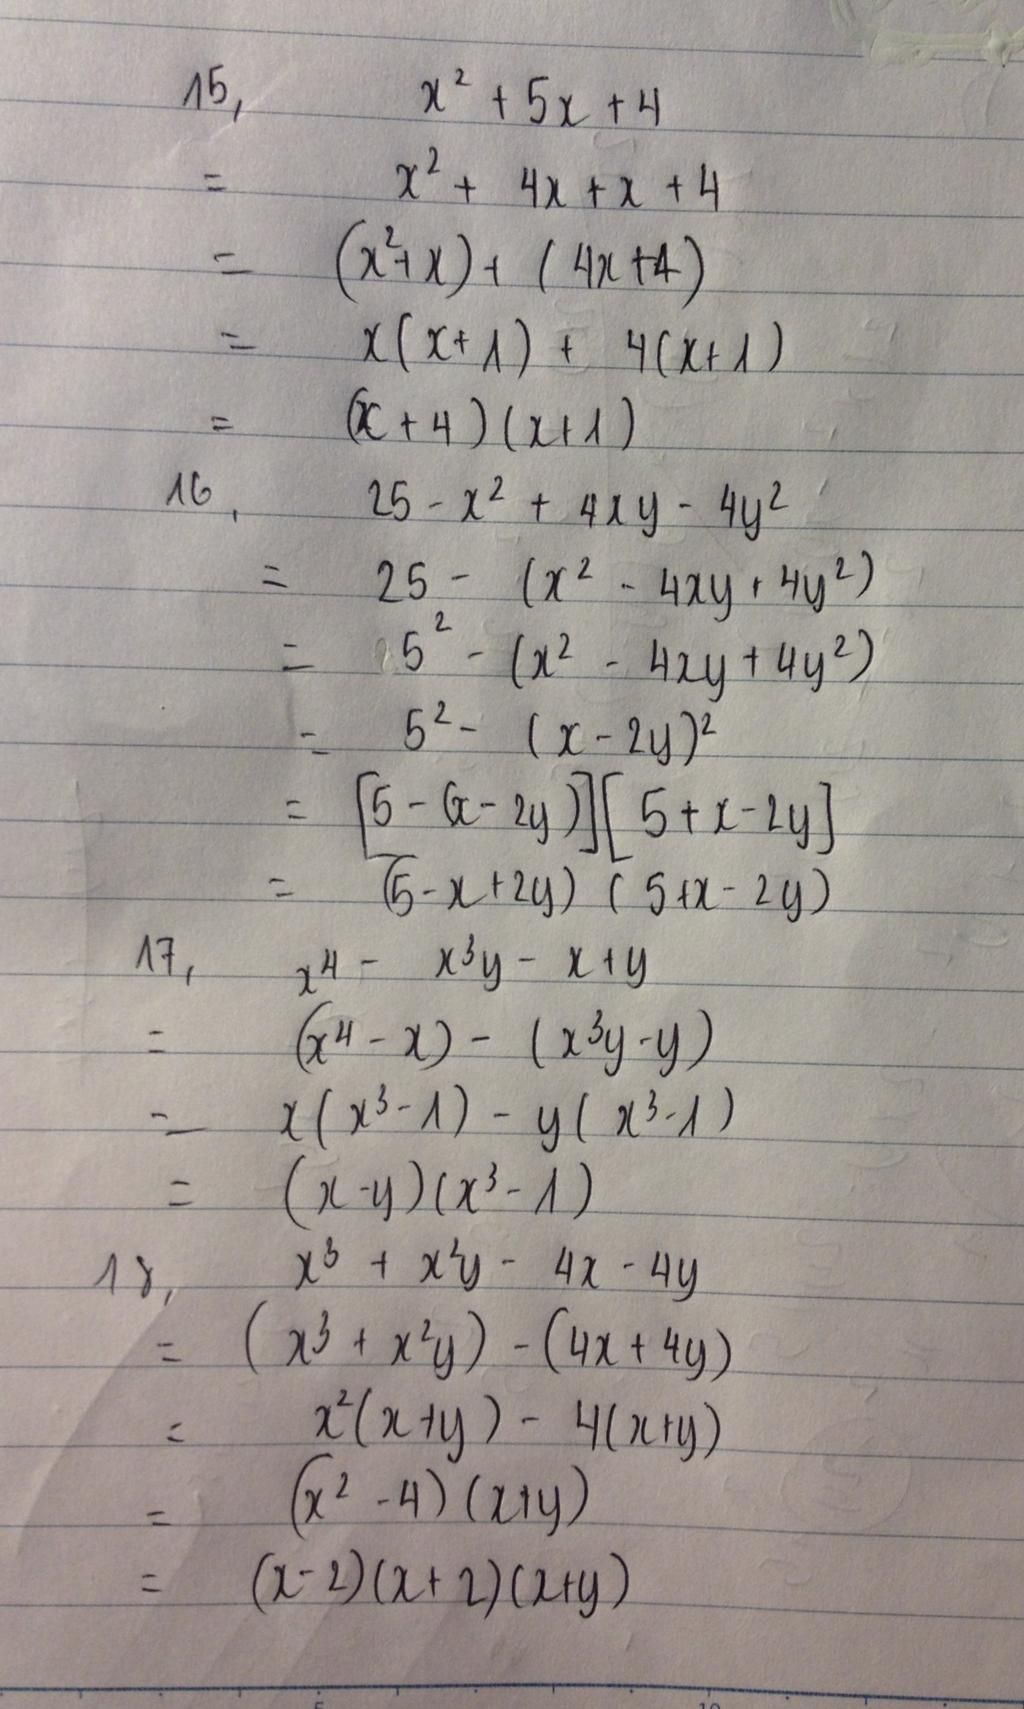 15, x² + 5x + 4
= x² + 4x + x + 4
= (x² + x) + (4x + 4)
= x(x + 1) + 4(x + 1)
= (x + 4)(x + 1)
16, 25 - x² + 4xy - 4y²
= 25 - (x² - 4xy + 4y²)
= 5² - (x² - 4xy + 4y²)
= 5² - (x - 2y)²
= [5 - (x - 2y)][5 + x - 2y]
= (5 - x + 2y)(5 + x - 2y)
17, x⁴ - x³y - x + y
= (x⁴ - x) - (x³y - y)
= x(x³ - 1) - y(x³ - 1)
= (x - y)(x³ - 1)
18, x³ + x²y - 4x - 4y
= (x³ + x²y) - (4x + 4y)
= x²(x + y) - 4(x + y)
= (x² - 4)(x + y)
= (x - 2)(x + 2)(x + y)
5 10